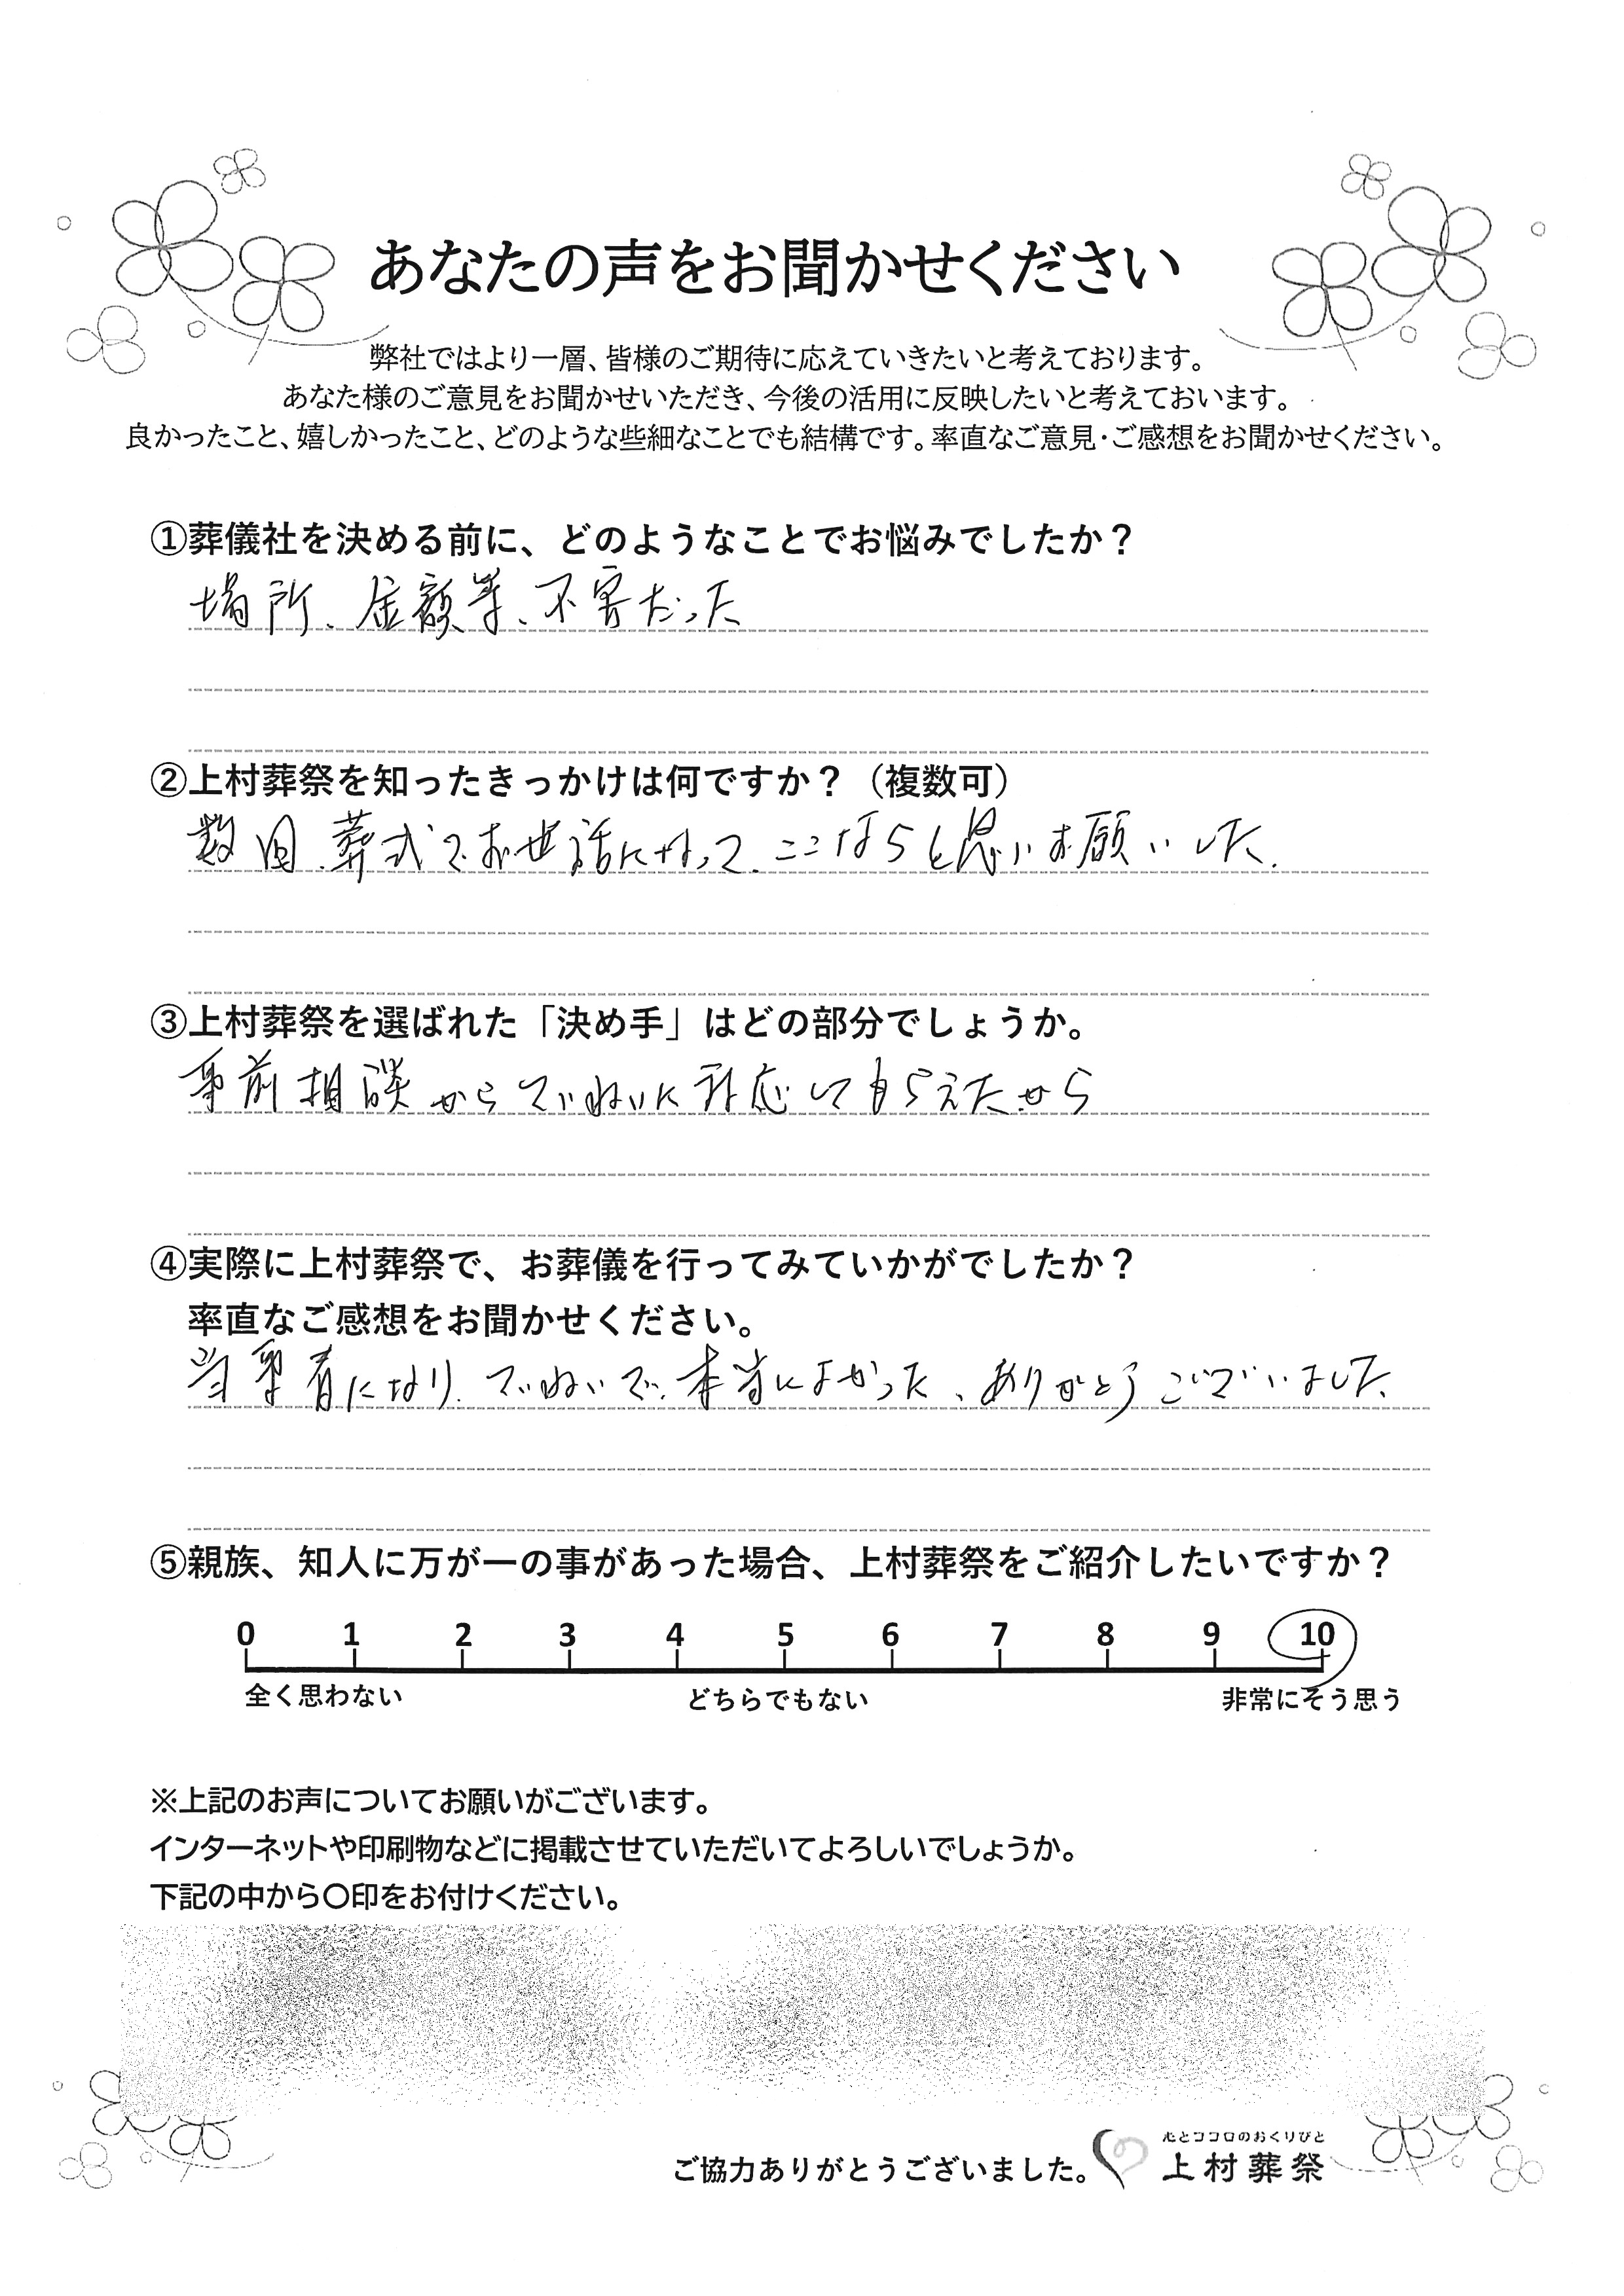 あなたの声をお聞かせください
弊社ではより一層、皆様のご期待に応えていきたいと考えております。
あなた様のご意見をお聞かせいただき、今後の活用に反映したいと考えておいます。
良かったこと、嬉しかったこと、どのような些細なことでも結構です。率直なご意見・ご感想をお聞かせください。
①葬儀社を決める前に、どのようなことでお悩みでしたか？
場所、金額等、不安だった
②上村葬祭を知ったきっかけは何ですか？（複数可）
数回、葬式でお世話になって、ここならと思いお願いした、
③上村葬祭を選ばれた「決め手」はどの部分でしょうか。
事前相談からていねいに対応してもらえたから
④実際に上村葬祭で、お葬儀を行ってみていかがでしたか？
率直なご感想をお聞かせください。
当事者になり、ていねいで、本当によかった、ありがとうございました
⑤親族、知人に万が一の事があった場合、上村葬祭をご紹介したいですか？
0 1 2 3 4 5 6 7 8 9 10
全く思わない どちらでもない 非常にそう思う
※上記のお声についてお願いがございます。
インターネットや印刷物などに掲載させていただいてよろしいでしょうか。
下記の中から〇印をお付けください。
心とココロのおくりびと
ご協力ありがとうございました。 上村葬祭